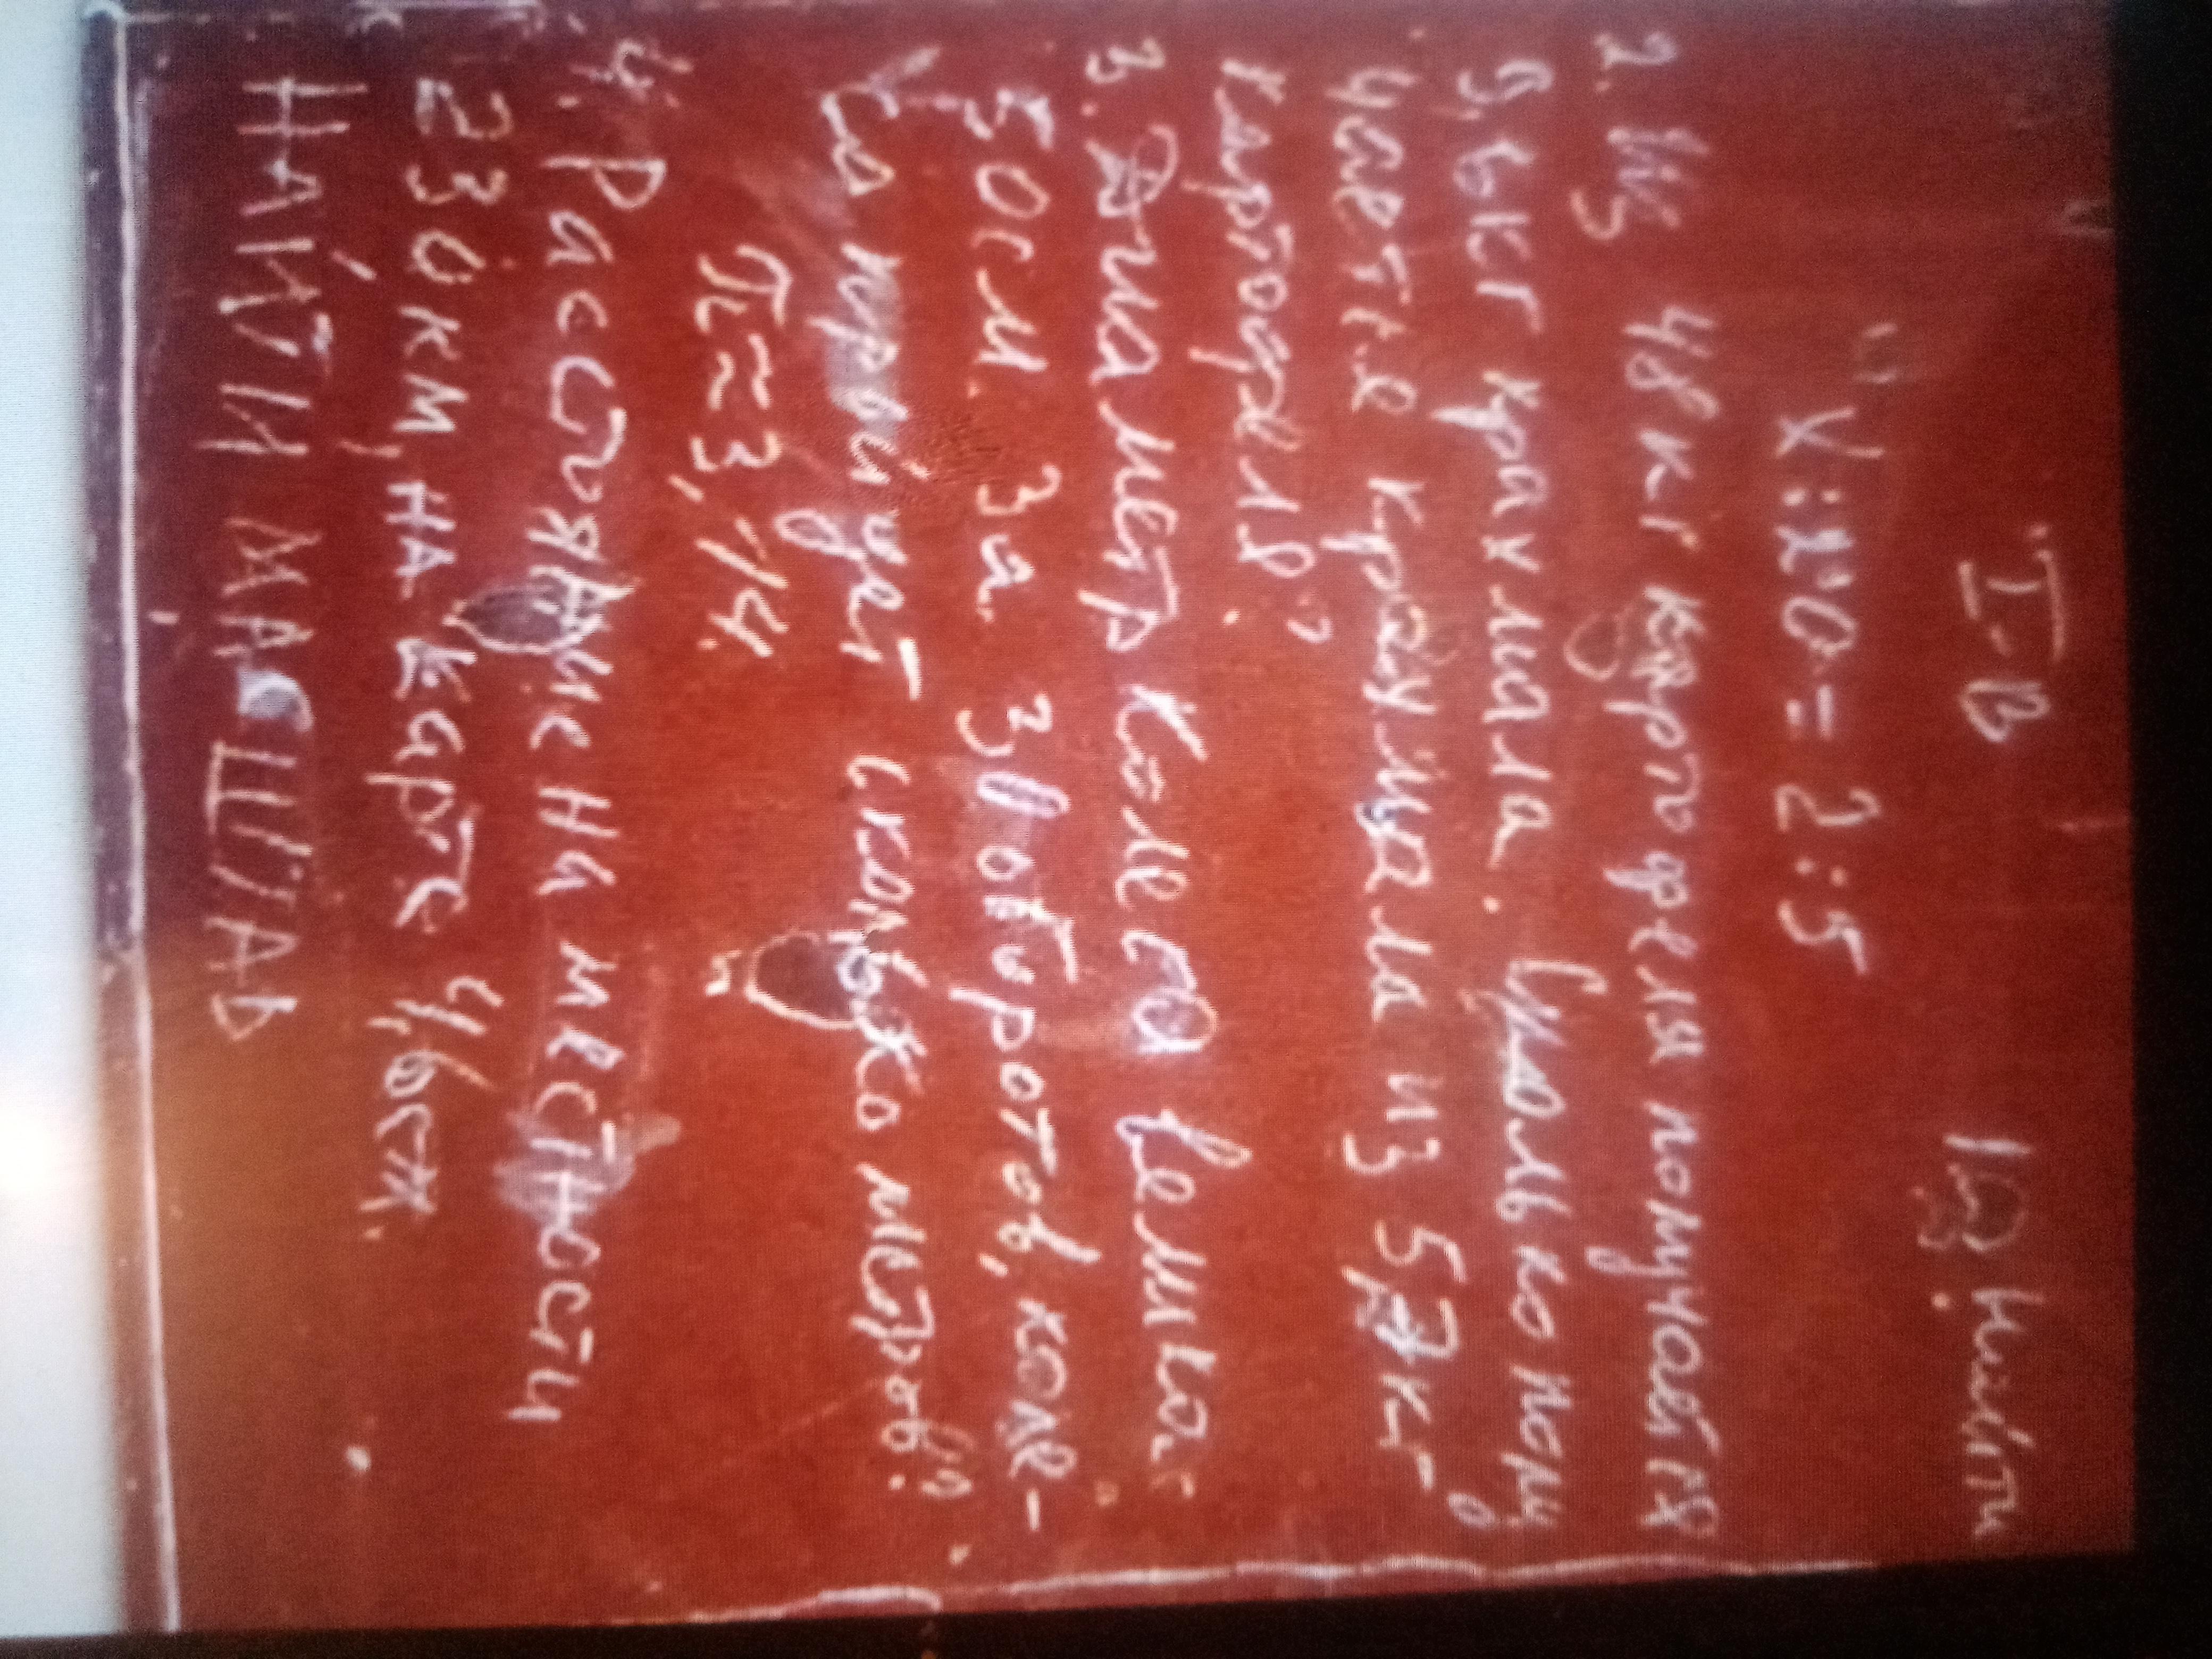 I-В 1) Найти
X:20=2:5
2. Из 48 кг картофеля получается
9,6кг крахмала. Сколько полу
чаете крахмала из 57 кг
картофеля?
3. Диаметр колеса велика
50см. За 30 оборотов, коле-
со пройдет сколько метров?
π≈3,14
4. Расстояние на местности
230км, на карте 4,6см.
НАЙТИ МАСШТАБ